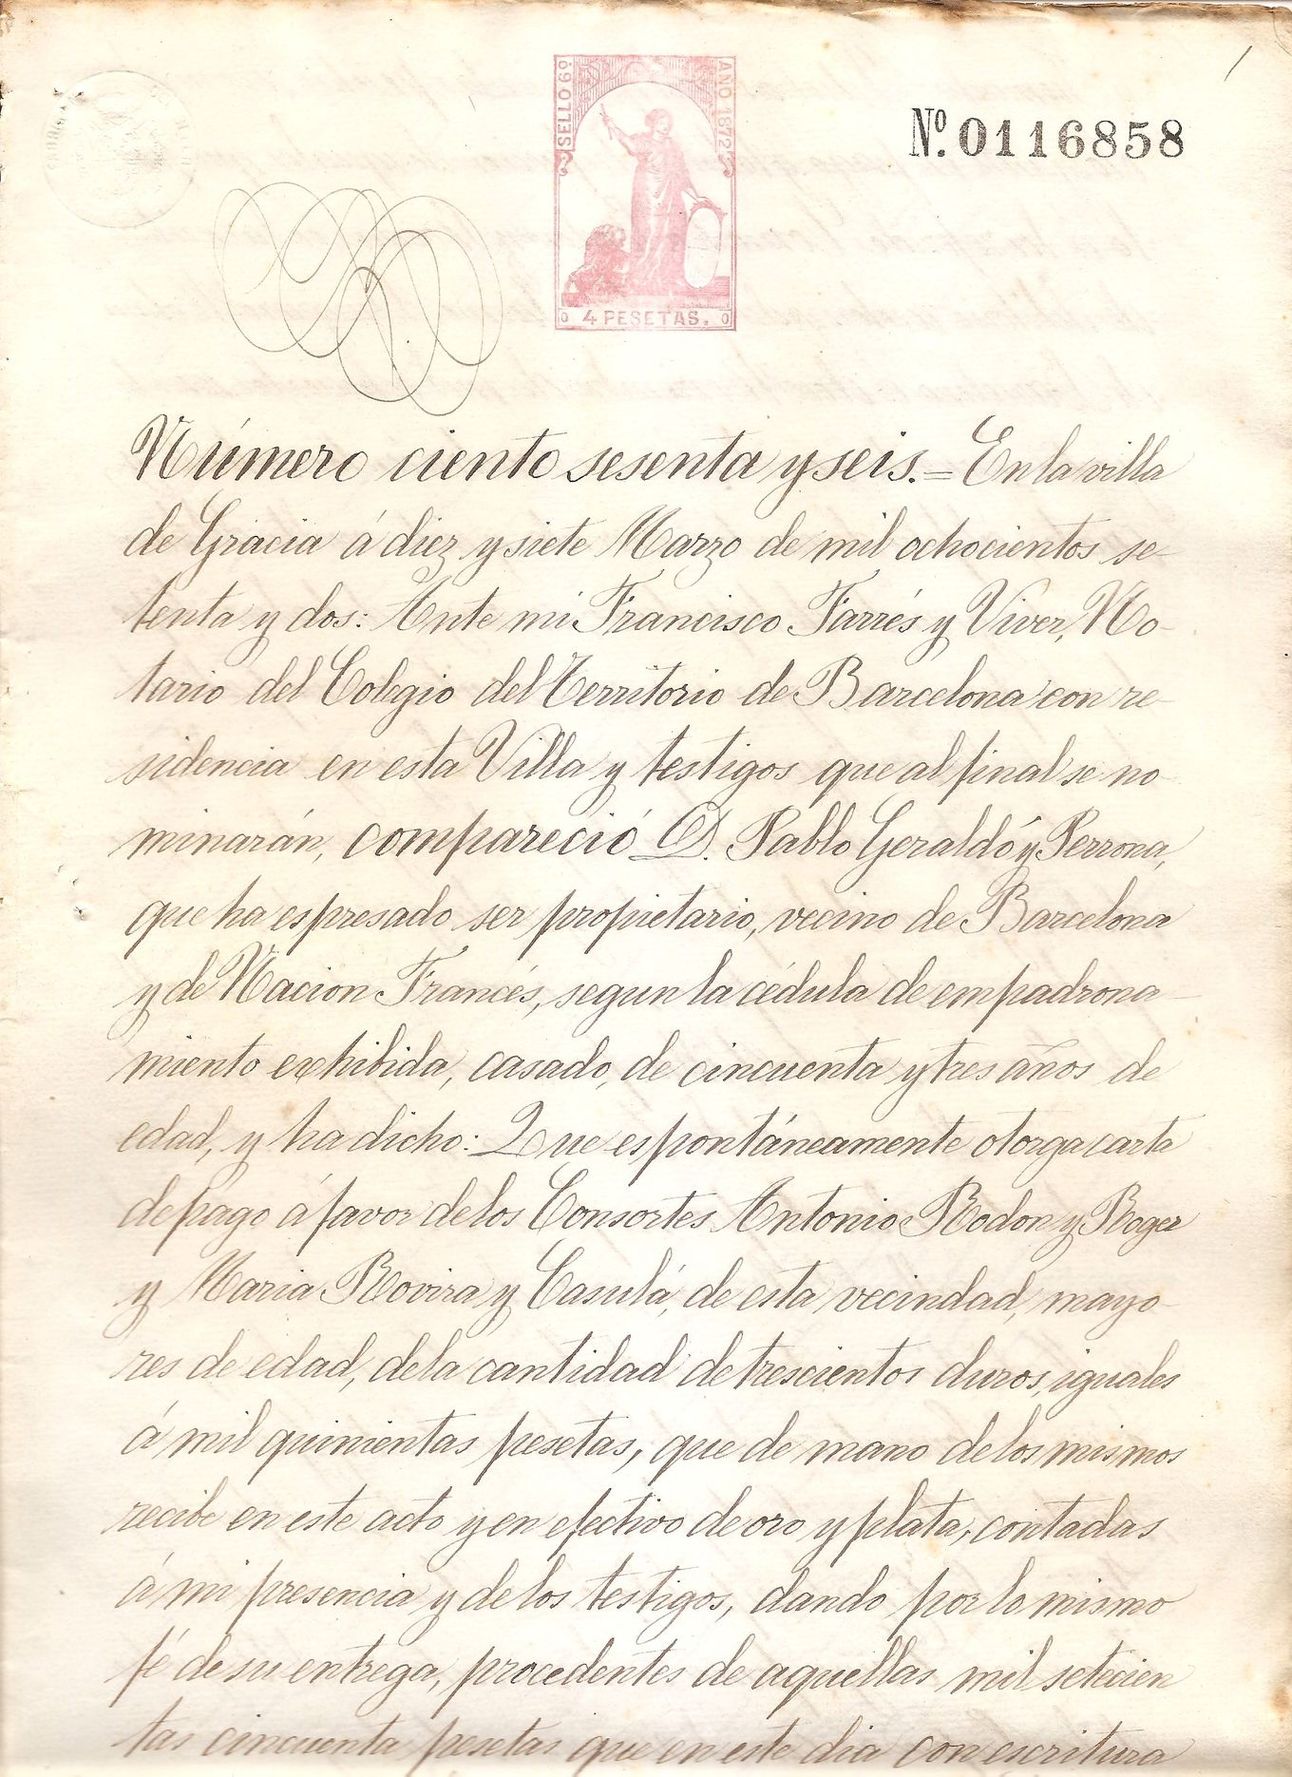 1
SELLO 6º
AÑO 1872
Nº. 0116858
4 PESETAS.
Número ciento sesenta y seis.=En la villa
de Gracia á diez y siete Marzo de mil ochocientos se-
tenta y dos: Ante mi Francisco Farrés y Viver, No-
tario del Colegio del Territorio de Barcelona con re-
sidencia en esta Villa y testigos que al final se no-
minarán, compareció D. Pablo Geraldó y Perrona,
que ha espresado ser propietario, vecino de Barcelona
y de Nacion Francés, segun la cédula de empadrona-
miento exhibida, casado, de cincuenta y tres años de
edad, y ha dicho: Que espontáneamente otorga carta
de pago á favor de los Consortes Antonio Rodon y Roger
y Maria Rovira y Casulá, de esta vecindad, mayo-
res de edad, de la cantidad de trescientos duros, iguales
á mil quinientas pesetas, que de mano de los mismos
recibe en este acto y en efectivo de oro y plata, contadas
á mi presencia y de los testigos, dando por lo mismo
fé de su entrega, procedentes de aquellas mil setecien
tas cincuenta pesetas que en este dia con escritura